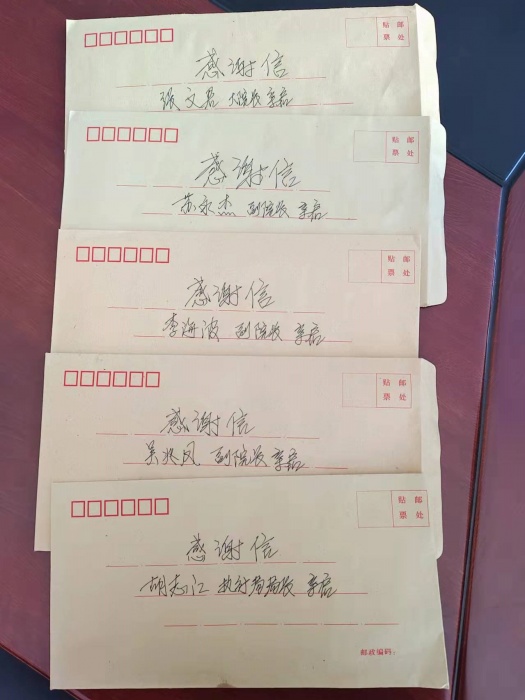 贴 邮
票 处
感谢信
张文君 大院长 亲启
贴 邮
票 处
感谢信
苏永杰 副院长 亲启
贴 邮
票 处
感谢信
李海波 副院长 亲启
贴 邮
票 处
感谢信
吴兆凤 副院长 亲启
贴 邮
票 处
感谢信
胡志江 执行局局长 亲启
邮政编码: